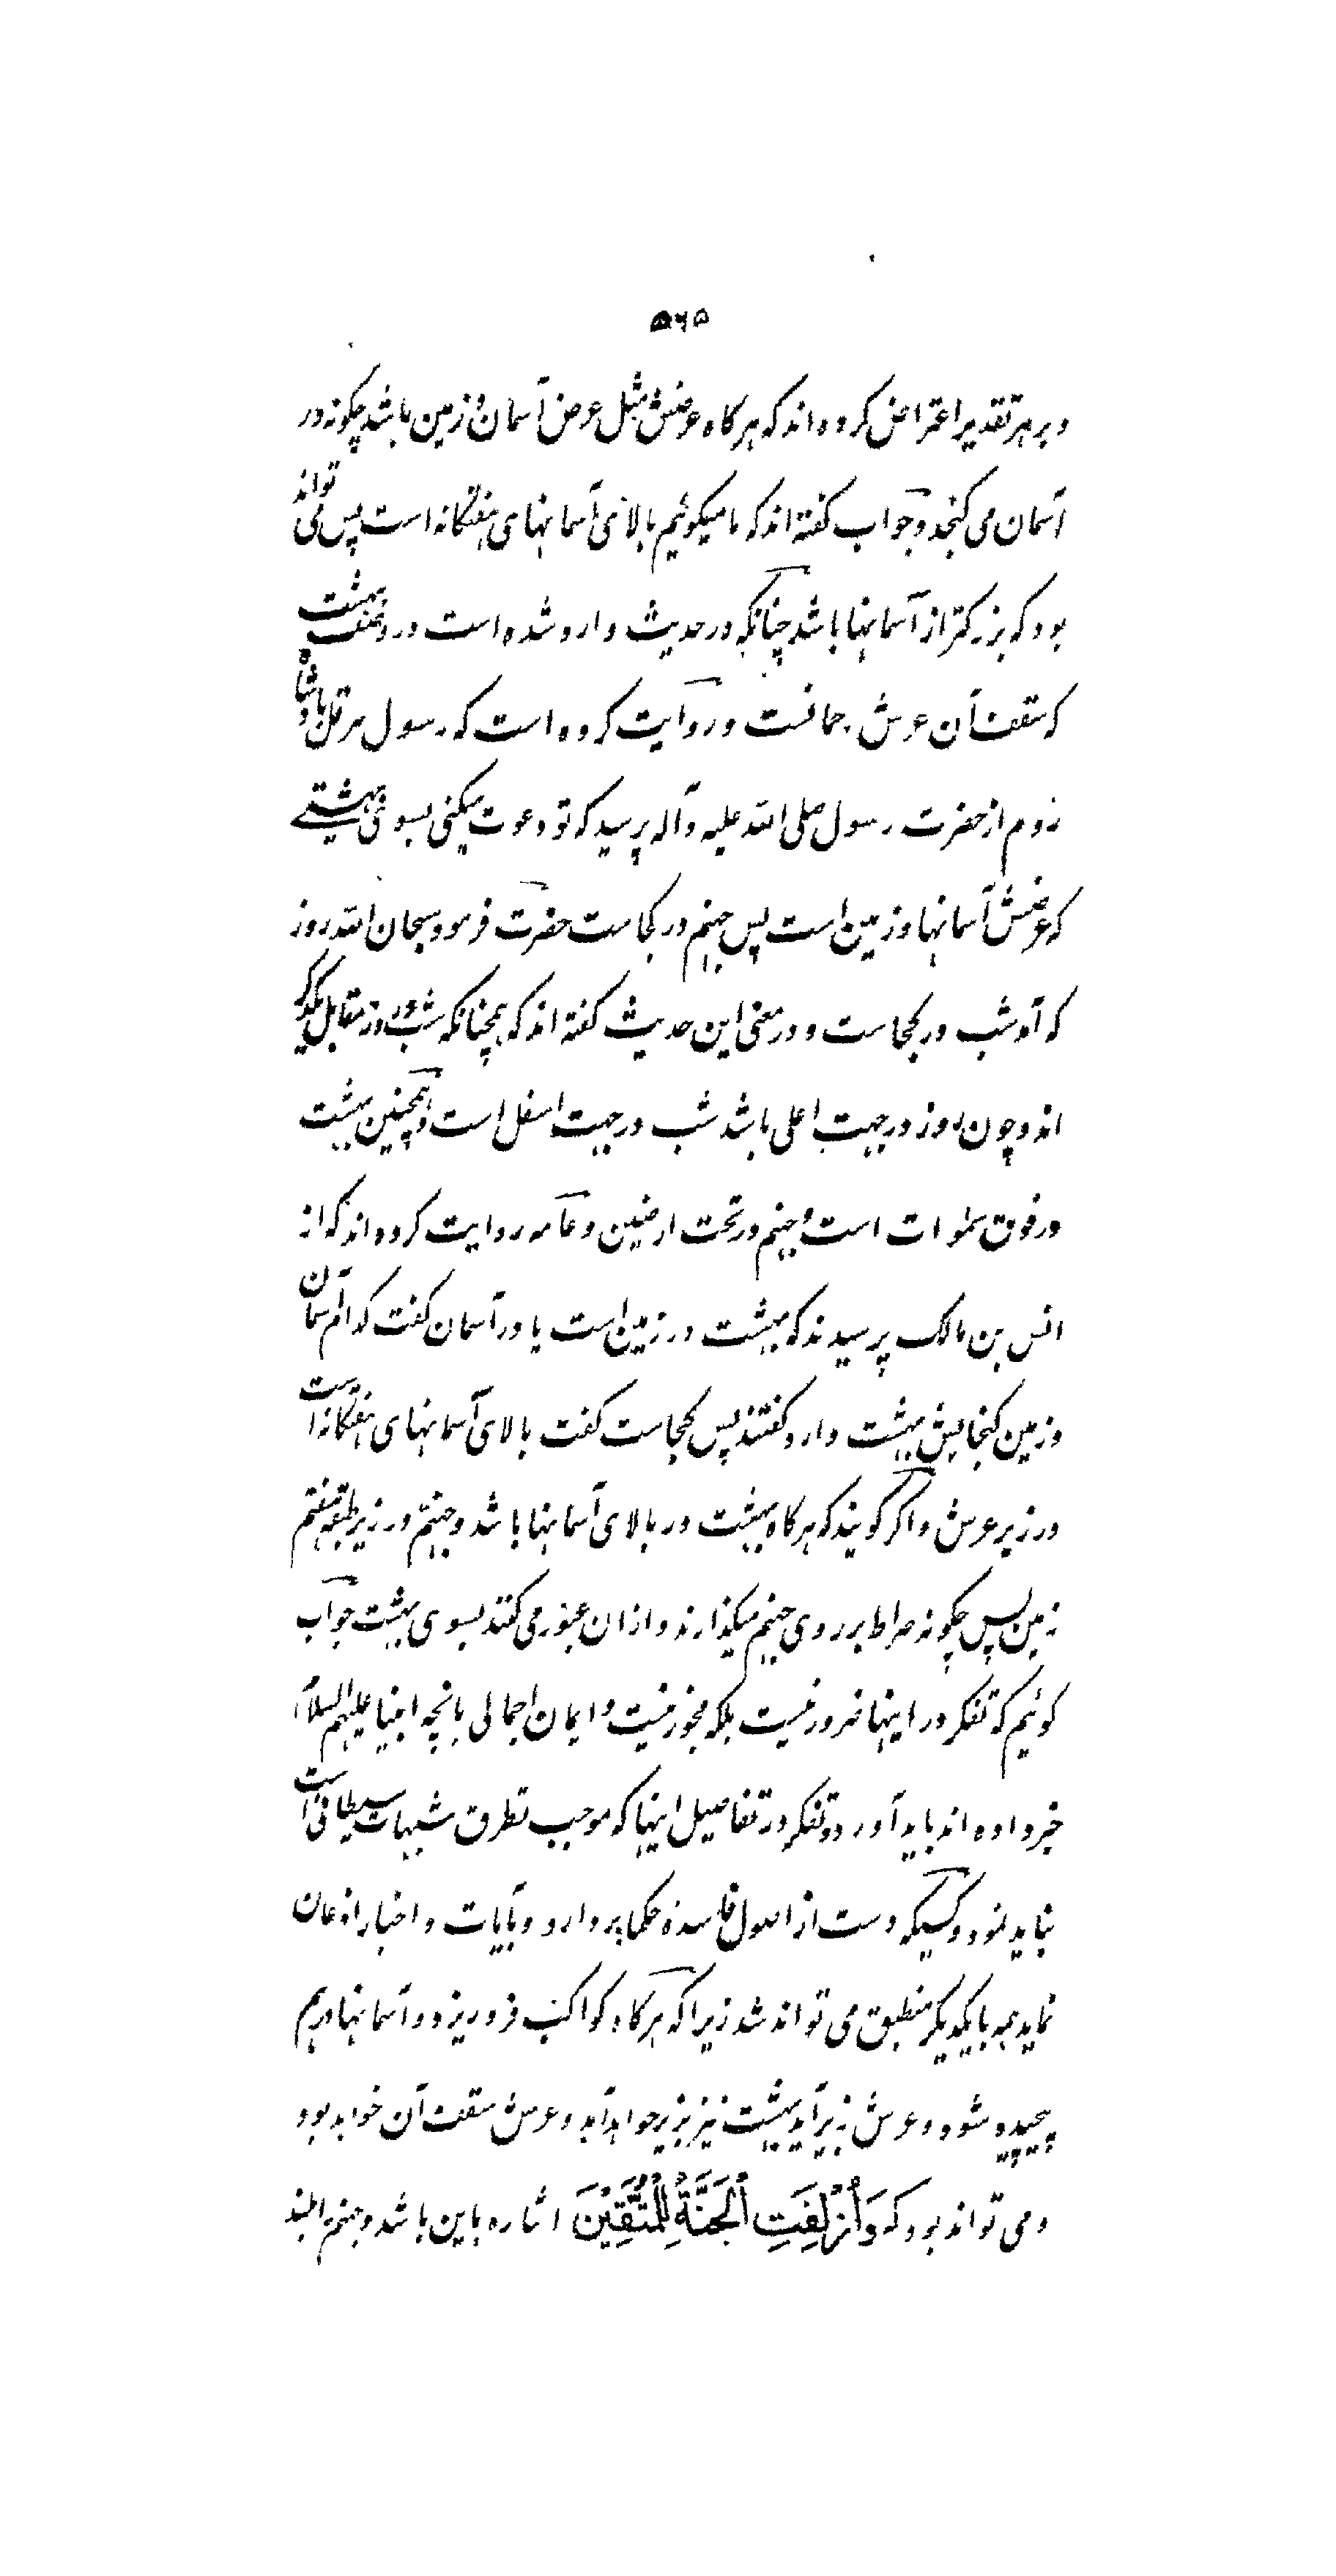 ۵۶۵
و بر هر تقدیر اعتراض کرده اند که هرکاه عرضش مثل عرض آسمان و زمین باشد چکونه در
آسمان می کنجد و جواب کفته اند که ما میکوئیم بالای آسمانهای هفتکانه است پس می تواند
بود که بزرکتر از آسمانها باشد چنانکه در حدیث وارد شده است در وصف بهشت
که سقف آن عرش رحمانست و روایت کرده است که رسول هرقل پادشاه
روم از حضرت رسول صلی الله علیه وآله پرسید که تو دعوت میکنی بسوی بهشتی
که عرضش آسمانها و زمین است پس جهنم در کجاست حضرت فرمود سبحان الله روز
که آمد شب در کجاست و در معنی این حدیث کفته اند که همچنانکه شب و روز در مقابل یکدیکر
اند و چون روز در جهت اعلی باشد شب در جهت اسفل است و همچنین بهشت
در فوق سموات است و جهنم در تحت ارضین و عامه روایت کرده اند که از
انس بن مالک پرسیدند که بهشت در زمین است یا در آسمان کفت کدام آسمان
و زمین کنجایش بهشت دارد کفتند پس کجاست کفت بالای آسمانهای هفتکانه است
در زیر عرش و اکر کویند که هرکاه بهشت در بالای آسمانها باشد و جهنم در زیر طبقه هفتم
زمین پس چکونه صراط بر روی جهنم میکذارند و از ان عبور می کنند بسوی بهشت جواب
کوئیم که تفکر در اینها ضرور نیست بلکه مجوز نیست و ایمان اجمالی بانچه انبیا علیهم السلام
خبر داده اند باید آورد و تفکر در تفاصیل اینها که موجب تطرق شبهات شیطانی است
نباید نمود و کسیکه دست از اصول فاسده حکما بردارد و بآیات و اخبار اذعان
نماید همه با یکدیکر منطبق می تواند شد زیرا که هرکاه کواکب فرو ریزد و آسمانها درهم
پیچیده شود و عرش بزیر آید بهشت نیز بزیر خواهد آمد و عرش سقف آن خواهد بود
و می تواند بود که وَأُزْلِفَتِ الْجَنَّةُ لِلْمُتَّقِيْنَ اشاره باین باشد و جهنم را بلند